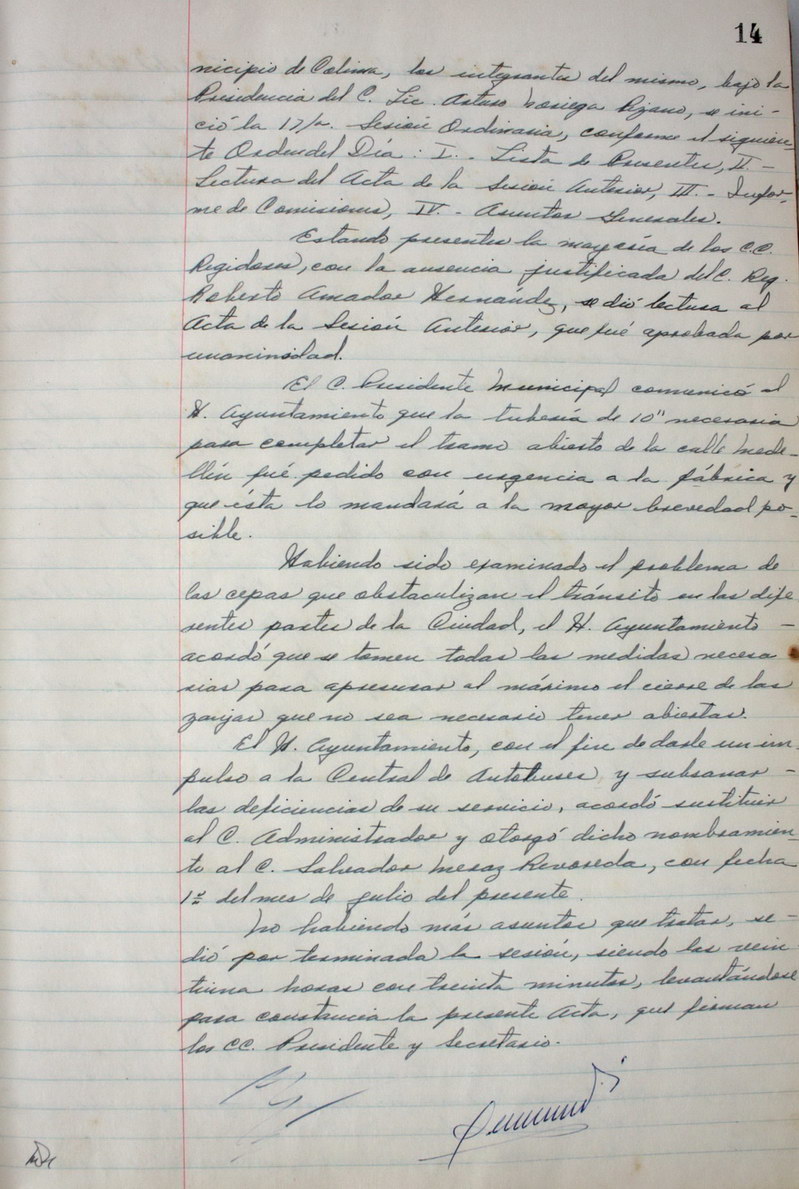 14
nicipio de Colima, los integrantes del mismo, bajo la
Presidencia del C. Lic. Arturo Noriega Pizano, se ini-
ció la 17/a. Sesión Ordinaria, conforme el siguien-
te Orden del Día: I.- Lista de Presentes, II.-
Lectura del Acta de la Sesión Anterior, III.- Infor-
me de Comisiones, IV.- Asuntos Generales.
Estando presentes la mayoría de los C.C.
Regidores, con la ausencia justificada del C. Reg.
Roberto Amador Hernández, se dió lectura al
Acta de la Sesión Anterior, que fué aprobada por
unanimidad.
El C. Presidente Municipal comunicó al
H. Ayuntamiento que la tubería de 10" necesaria
para completar el tramo abierto de la calle Mede-
llín fué pedido con urgencia a la fábrica y
que ésta lo mandará a la mayor brevedad po-
sible.
Habiendo sido examinado el problema de
las cepas que obstaculizan el tránsito en las dife
rentes partes de la Ciudad, el H. Ayuntamiento -
acordó que se tomen todas las medidas necesa
rias para apresurar al máximo el cierre de las
zanjas que no sea necesario tener abiertas.
El H. Ayuntamiento, con el fin de darle un im
pulso a la Central de Autobuses y subsanar -
las deficiencias de su servicio, acordó sustituir
al C. Administrador y otorgó dicho nombramien-
to al C. Salvador Meraz Rivoreda, con fecha
1º del mes de julio del presente.
No habiendo más asuntos que tratar, se -
dió por terminada la sesión, siendo las vein
tiuna horas con treinta minutos, levantándose
para constancia la presente Acta, que firman
los CC. Presidente y Secretario.